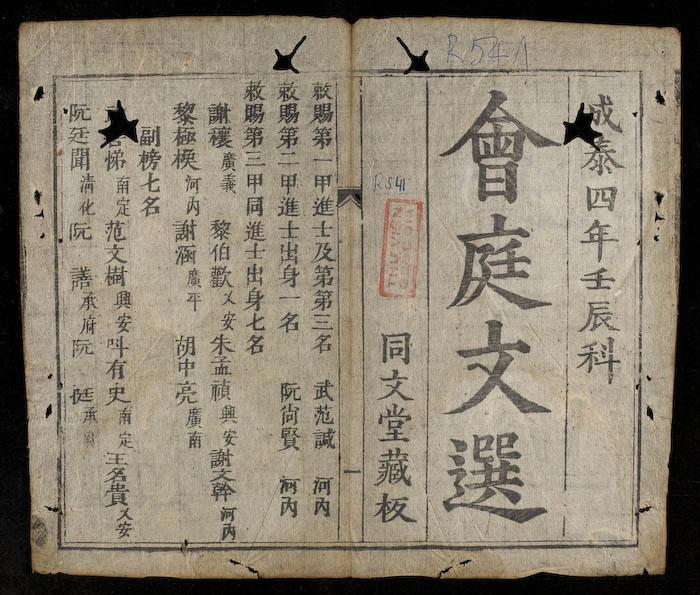 R541
成泰四年壬辰科
會庭文選
同文堂藏板
R541
一
敕賜第一甲進士及第第三名 武范諴 河內
敕賜第二甲進士出身一名 阮尙賢 河內
敕賜第三甲同進士出身七名
謝穰 廣義 黎伯歡 乂安 朱孟禎 興安 謝文幹 河內
黎極楧 河內 謝涵 廣平 胡中亮 廣南
副榜七名
悌 南定 范文樹 興安 有史 南定 王名貴 乂安
阮廷聞 清化 阮 譱 承府 阮 承